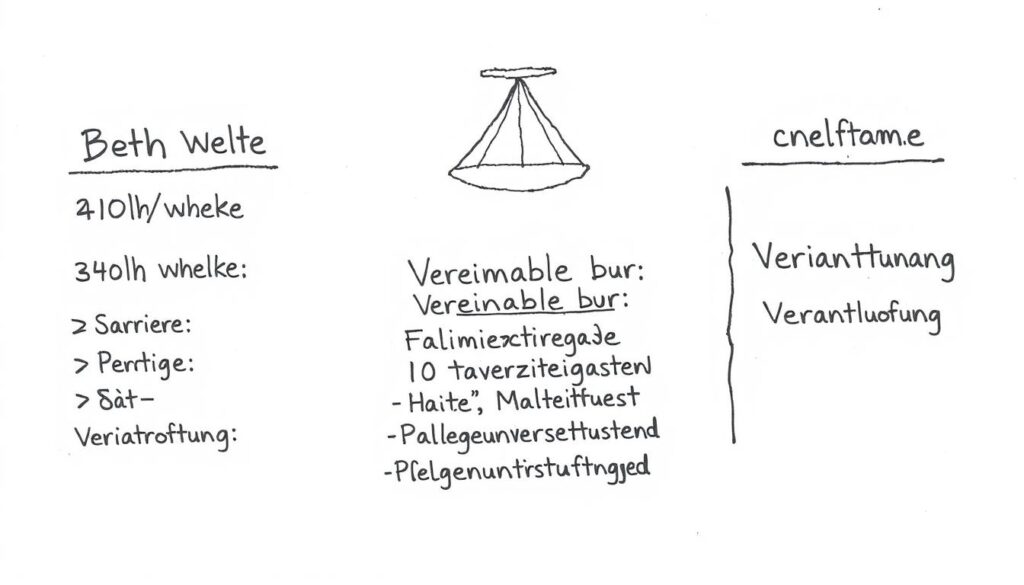 Beth Welte
410lh/wheke
340lh whelke:
> Sarriere:
> Perrtige:
> δàt-
Veriatroftung:
Vereimable bur:
Vereinable bur:
Falimiexctiregade
10 taverziteigasten
- Haite", Malteitfuest
-Pallegeunversettustend
-Pfelgenuntirstuftngjed
cnelftam.e
Verianttunang
Verantluofung